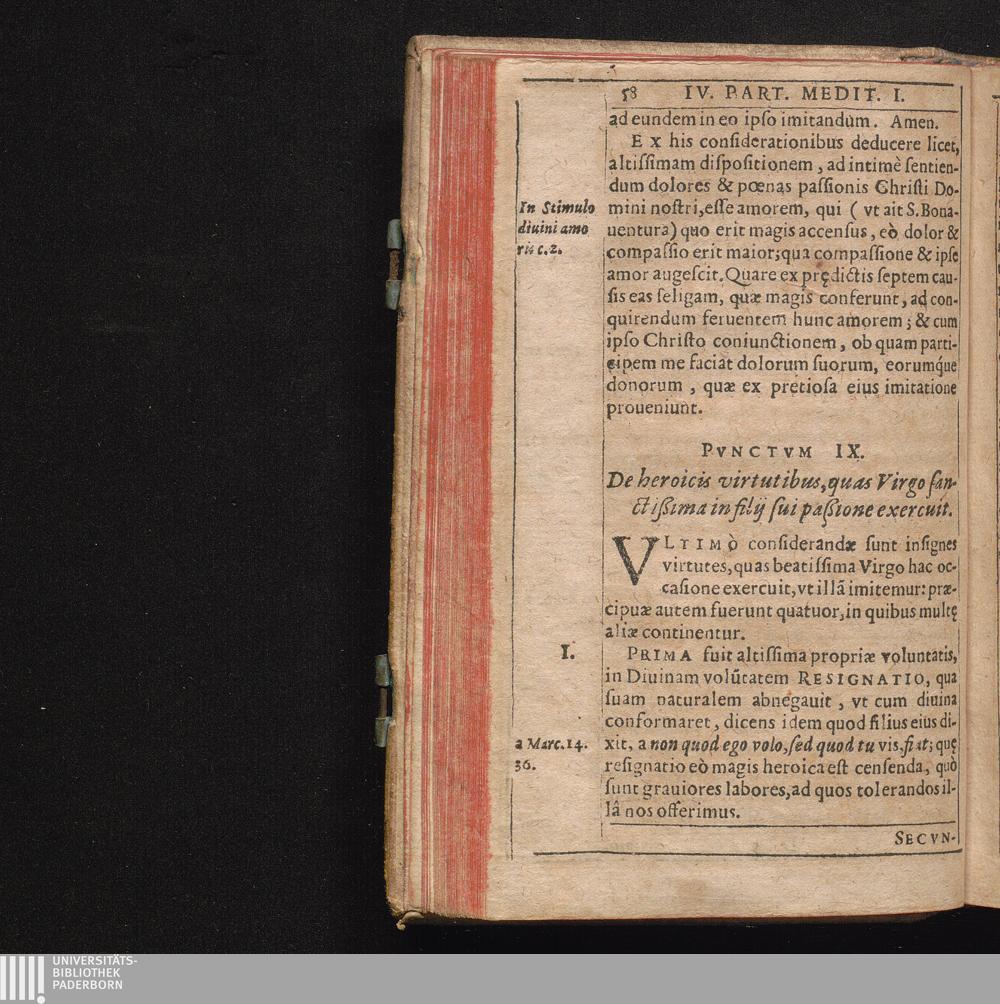 58 IV. PART. MEDIT. I.
ad eundem in eo ipſo imitandum. Amen.
EX his conſiderationibus deducere licet,
altiſſimam diſpoſitionem, ad intimè ſentien-
dum dolores & pœnas paſſionis Chriſti Do-
In Stimulo
diuini amo
ris c.2.
mini noſtri, eſſe amorem, qui ( vt ait S. Bona-
uentura) quo erit magis accenſus, eò dolor &
compaſſio erit maior; qua compaſſione & ipſe
amor augeſcit. Quare ex prędictis ſeptem cau-
ſis eas ſeligam, quæ magis conferunt, ad con-
quirendum feruentem hunc amorem; & cum
ipſo Chriſto coniunctionem, ob quam parti-
cipem me faciat dolorum ſuorum, eorumq́ue
donorum, quæ ex pretioſa eius imitatione
proueniunt.
PVNCTVM IX.
De heroicis virtutibus, quas Virgo ſan-
ctißima in filij ſui paßione exercuit.
VLTIMÒ conſiderandæ ſunt inſignes
virtutes, quas beatiſſima Virgo hac oc-
caſione exercuit, vt illā imitemur: præ-
cipuæ autem fuerunt quatuor, in quibus multę
aliæ continentur.
I.
PRIMA fuit altiſſima propriæ voluntatis,
in Diuinam volūtatem RESIGNATIO, qua
ſuam naturalem abnegauit, vt cum diuina
conformaret, dicens idem quod filius eius di-
a Marc. 14.
36.
xit, a non quod ego volo, ſed quod tu vis, fiat; quę
reſignatio eò magis heroica eſt cenſenda, quò
ſunt grauiores labores, ad quos tolerandos il-
lâ nos offerimus.
SECVN-
UNIVERSITÄTS-
BIBLIOTHEK
PADERBORN